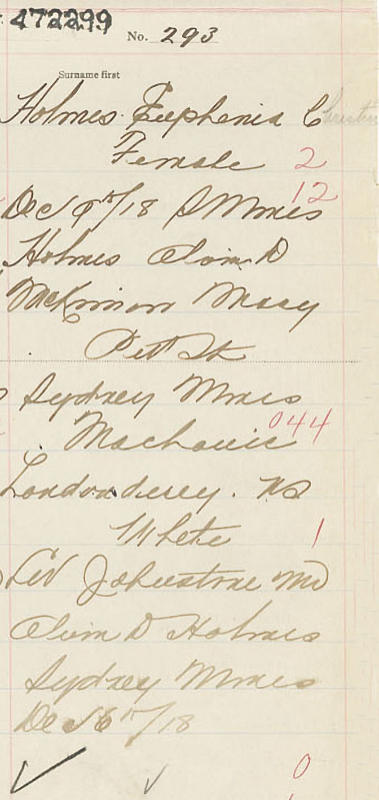 472299
No. 293
Surname first
Holmes Euphenia C
Female 2
12
Dec 9th/18 S Mines
Holmes Alvin D
McKinnon Mary
Pitt St
Sydney Mines
044
Mechanic
Londonderry. NS
White 1
Johnstone MD
Alvin D Holmes
Sydney Mines
Dec 16th/18
0